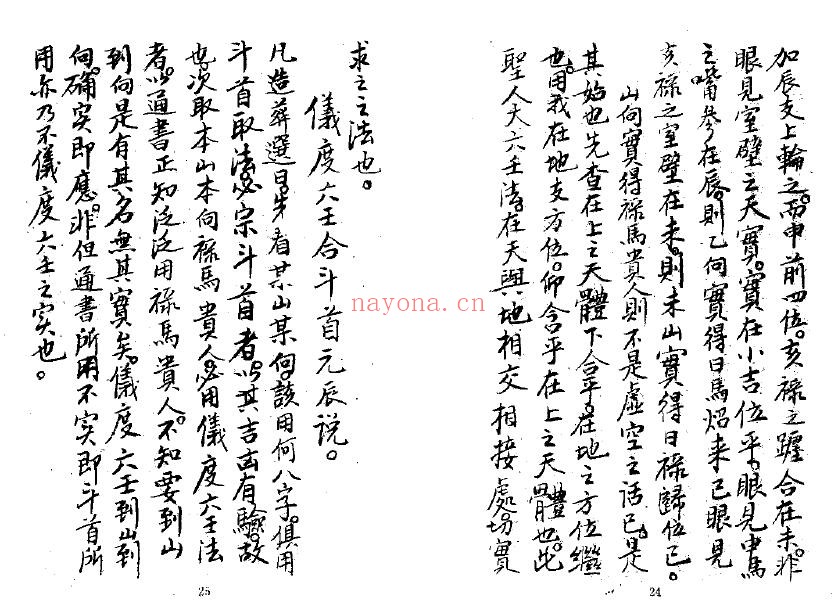 加辰支上輪之。而申前四位。亥祿之躔合在未。非
眼見室壁之天實。實在小吉位乎。眼見申馬
之嘴參在辰。則乙向實得日馬炤来已眼見
亥祿之室壁在未。則未山實得日祿歸位已。
山向實得祿馬貴人則不是虛空之話已。是
其始也先查在上之天體下合乎在地之方位繼
也。用我在地支方位。仰合乎在上之天體也。此
聖人大六壬法。在天與地相交相接處切實
24
求之之法也。
儀度六壬合斗首元辰説。
凡造葬選日。先看某山某向。該用何八字。俱用
斗首取法。必宗斗首者。以其吉凶有驗。故
也。次取本山本向祿馬貴人。必用儀度六壬法
者。以通書正知泛泛用祿馬貴人。不知要到山
到向是有其名無其實矣。儀度六壬到山到
向。確实即應。非但通書所用不实即斗首所
用亦乃不儀度六壬之实也。
25
nayona.cn